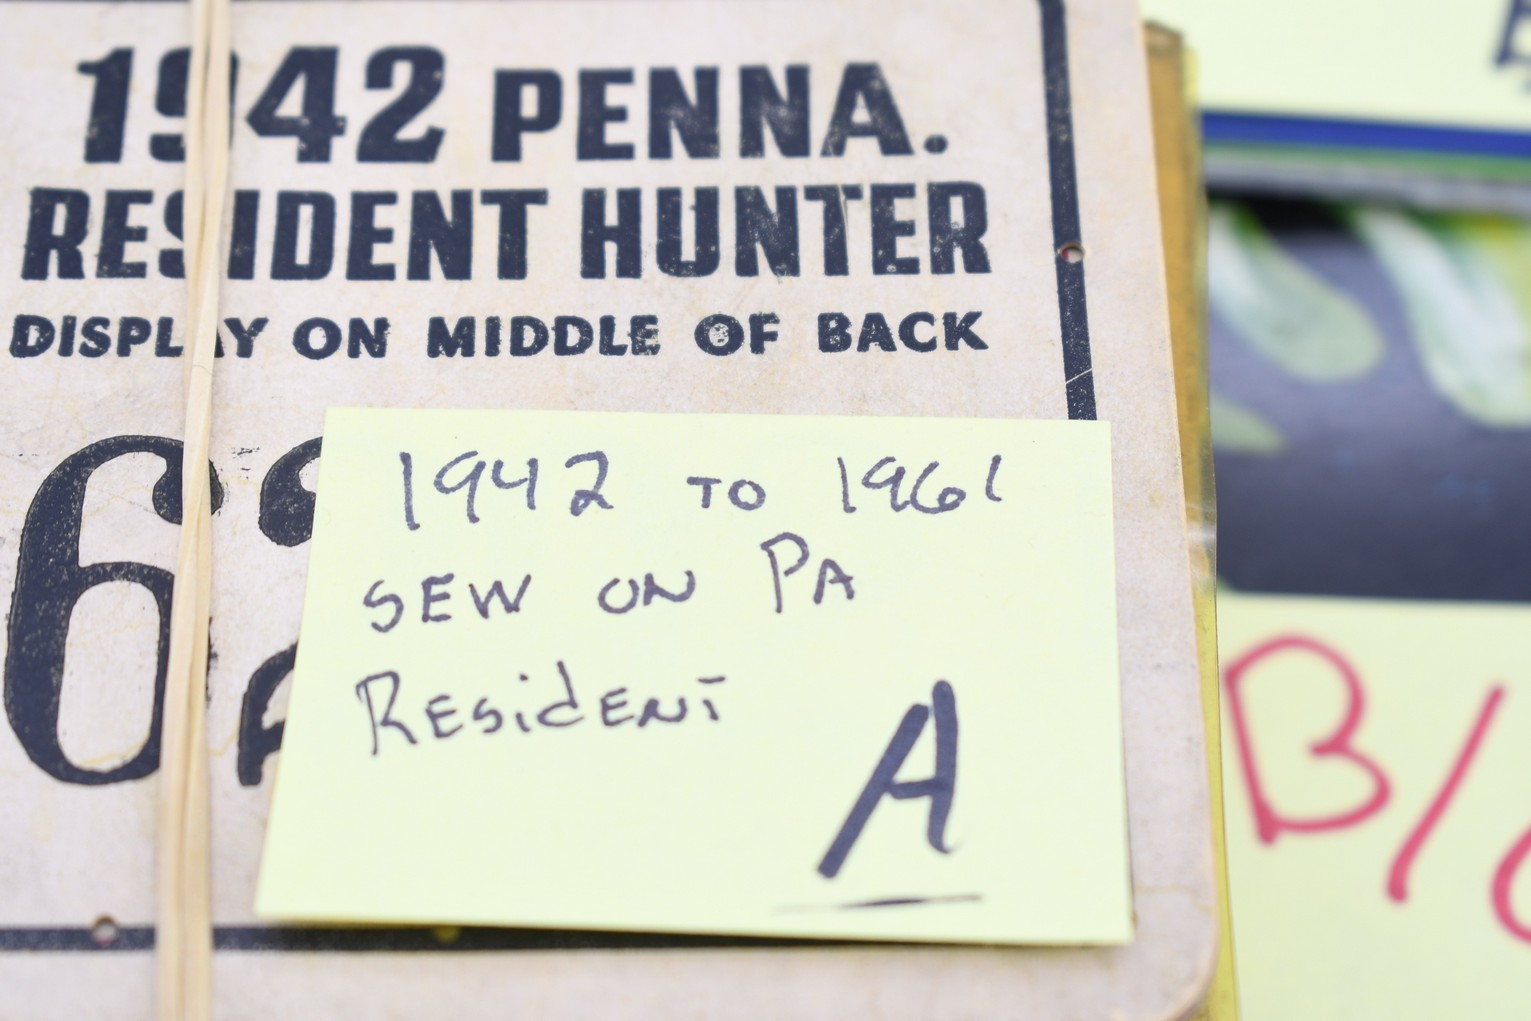 1942 PENNA.
RESIDENT HUNTER
DISPLAY ON MIDDLE OF BACK
1942 TO 1961
SEW ON PA
RESidENT
A
B/